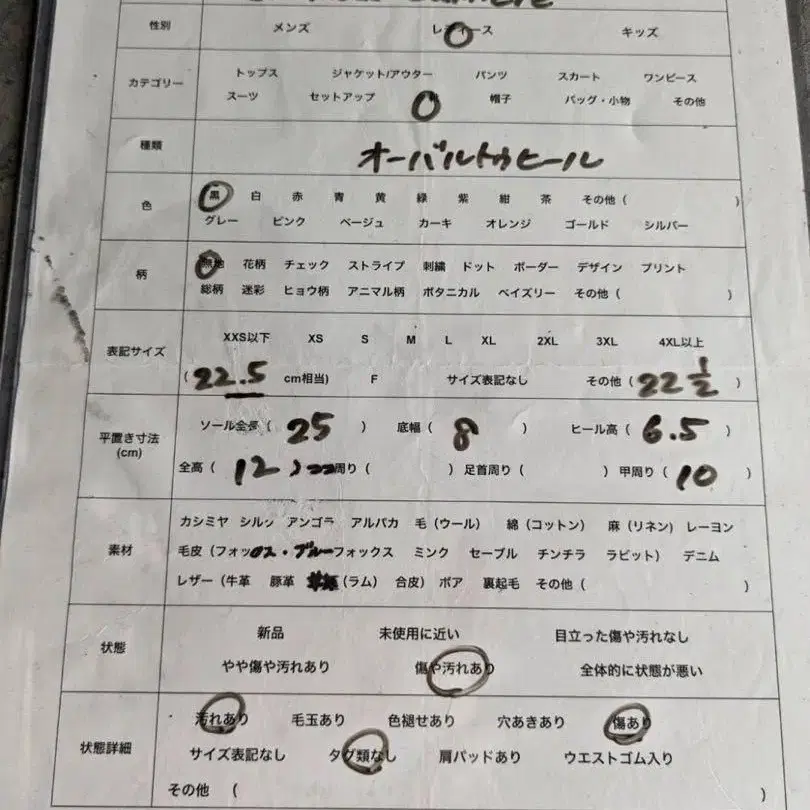 性別 メンズ レディース キッズ
カテゴリー トップス ジャケット/アウター パンツ スカート ワンピース
スーツ セットアップ 帽子 バッグ・小物 その他
種類 オーバルトゥヒール
色 黒 白 赤 青 黄 緑 紫 紺 茶 その他( )
グレー ピンク ベージュ カーキ オレンジ ゴールド シルバー
柄 無地 花柄 チェック ストライプ 刺繍 ドット ボーダー デザイン プリント
総柄 迷彩 ヒョウ柄 アニマル柄 ボタニカル ペイズリー その他( )
表記サイズ XXS以下 XS S M L XL 2XL 3XL 4XL以上
(22.5 cm相当) F サイズ表記なし その他(22 1/2)
平置き寸法(cm) ソール全長(25) 底幅(8) ヒール高(6.5)
全高(12) 周り( ) 足首周り( ) 甲周り(10)
素材 カシミヤ シルク アンゴラ アルパカ 毛(ウール) 綿(コットン) 麻(リネン) レーヨン
毛皮(フォックス・ブルーフォックス ミンク セーブル チンチラ ラビット) デニム
レザー(牛革 豚革 (ラム) 合皮) ボア 裏起毛 その他( )
状態 新品 未使用に近い 目立った傷や汚れなし
やや傷や汚れあり 傷や汚れあり 全体的に状態が悪い
状態詳細 汚れあり 毛玉あり 色褪せあり 穴あきあり 傷あり
サイズ表記なし タグ類なし 肩パッドあり ウエストゴム入り
その他 (